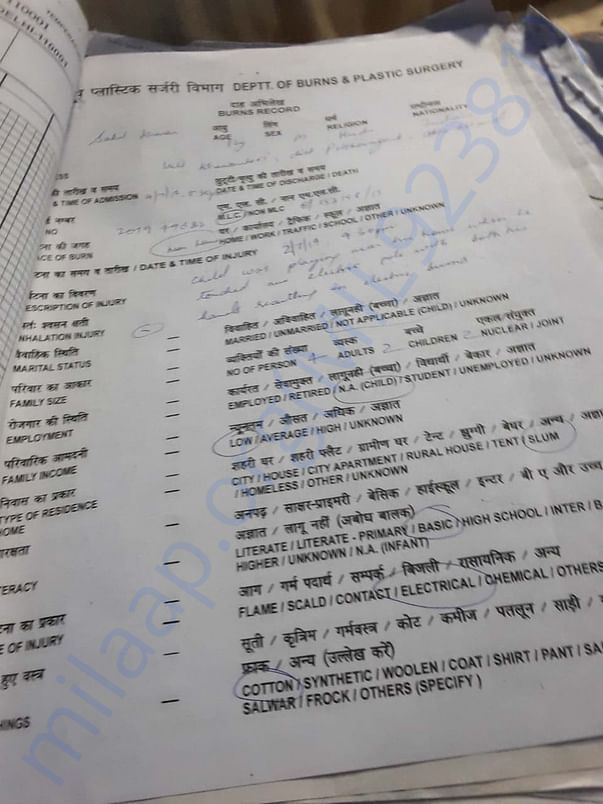 110001
DELHI-110001
व प्लास्टिक सर्जरी विभाग DEPTT. OF BURNS & PLASTIC SURGERY
दाह अभिलेख
BURNS RECORD
आयु लिंग धर्म राष्ट्रीयता
AGE SEX RELIGION NATIONALITY
ESS
की तारीख व समय छुट्टी/मृत्यु की तारीख व समय
& TIME OF ADMISSION DATE & TIME OF DISCHARGE / DEATH
नम्बर एम. एल. सी. / नान एम.एल.सी.
NO 2019 M.L.C. / NON MLC
ना की जगह घर / कार्यालय / ट्रैफिक / स्कूल / अज्ञात
ACE OF BURN HOME / WORK / TRAFFIC / SCHOOL / OTHER / UNKNOWN
टना का समय व तारीख / DATE & TIME OF INJURY 2/7/19
टना का विवरण child was playing near his house when he
ESCRIPTION OF INJURY touched an electric pole with both his
hands resulting in electric burns
श्वसन क्षती विवाहित / अविवाहित / लागूनही (बच्चा) / अज्ञात
NHALATION INJURY — MARRIED / UNMARRIED / NOT APPLICABLE (CHILD) / UNKNOWN
वैवाहिक स्थिति व्यक्तियों की संख्या व्यस्क बच्चे एकल/संयुक्त
MARITAL STATUS — NO OF PERSON 4 ADULTS 2 CHILDREN 2 NUCLEAR / JOINT
परिवार का आकार कार्यरत / सेवामुक्त / लागूनही (बच्चा) / विद्यार्थी / बेकार / अज्ञात
FAMILY SIZE — EMPLOYED / RETIRED / N.A. (CHILD) / STUDENT / UNEMPLOYED / UNKNOWN
रोजगार की स्थिति न्यूनतम / औसत / अधिक / अज्ञात
EMPLOYMENT — LOW / AVERAGE / HIGH / UNKNOWN
परिवारिक आमदनी शहरी घर / शहरी फ्लैट / ग्रामीण घर / टेन्ट / झुग्गी / बेघर / अन्य /
FAMILY INCOME — CITY / HOUSE / CITY APARTMENT / RURAL HOUSE / TENT / SLUM
निवास का प्रकार / HOMELESS / OTHER / UNKNOWN
TYPE OF RESIDENCE — अनपढ़ / साक्षर-प्राइमरी / बेसिक / हाईस्कूल / इन्टर / बी ए और उच्च
HOME अज्ञात / लागू नहीं (अबोध बालक)
LITERATE / LITERATE - PRIMARY / BASIC / HIGH SCHOOL / INTER / B
ERACY — HIGHER / UNKNOWN / N.A. (INFANT)
आग / गर्म पदार्थ / सम्पर्क / बिजली / रासायनिक / अन्य
टना का प्रकार — FLAME / SCALD / CONTACT / ELECTRICAL / CHEMICAL / OTHERS
E OF INJURY सूती / कृत्रिम / गर्मवस्त्र / कोट / कमीज / पतलून / साड़ी /
हुए वस्त्र फ्राक / अन्य (उल्लेख करें)
COTTON / SYNTHETIC / WOOLEN / COAT / SHIRT / PANT / SA
HINGS — SALWAR / FROCK / OTHERS (SPECIFY)